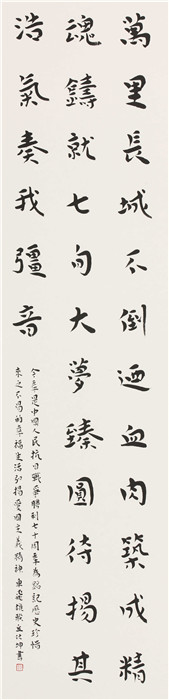 萬里長城不倒迺血肉築成精
魂鑄就七旬大夢臻圓待揚其
浩氣奏我彊音
今年是中國人民抗日戰爭勝利七十周年爲銘記歷史珍惜
來之不易的幸福生活弘揚愛國主義精神